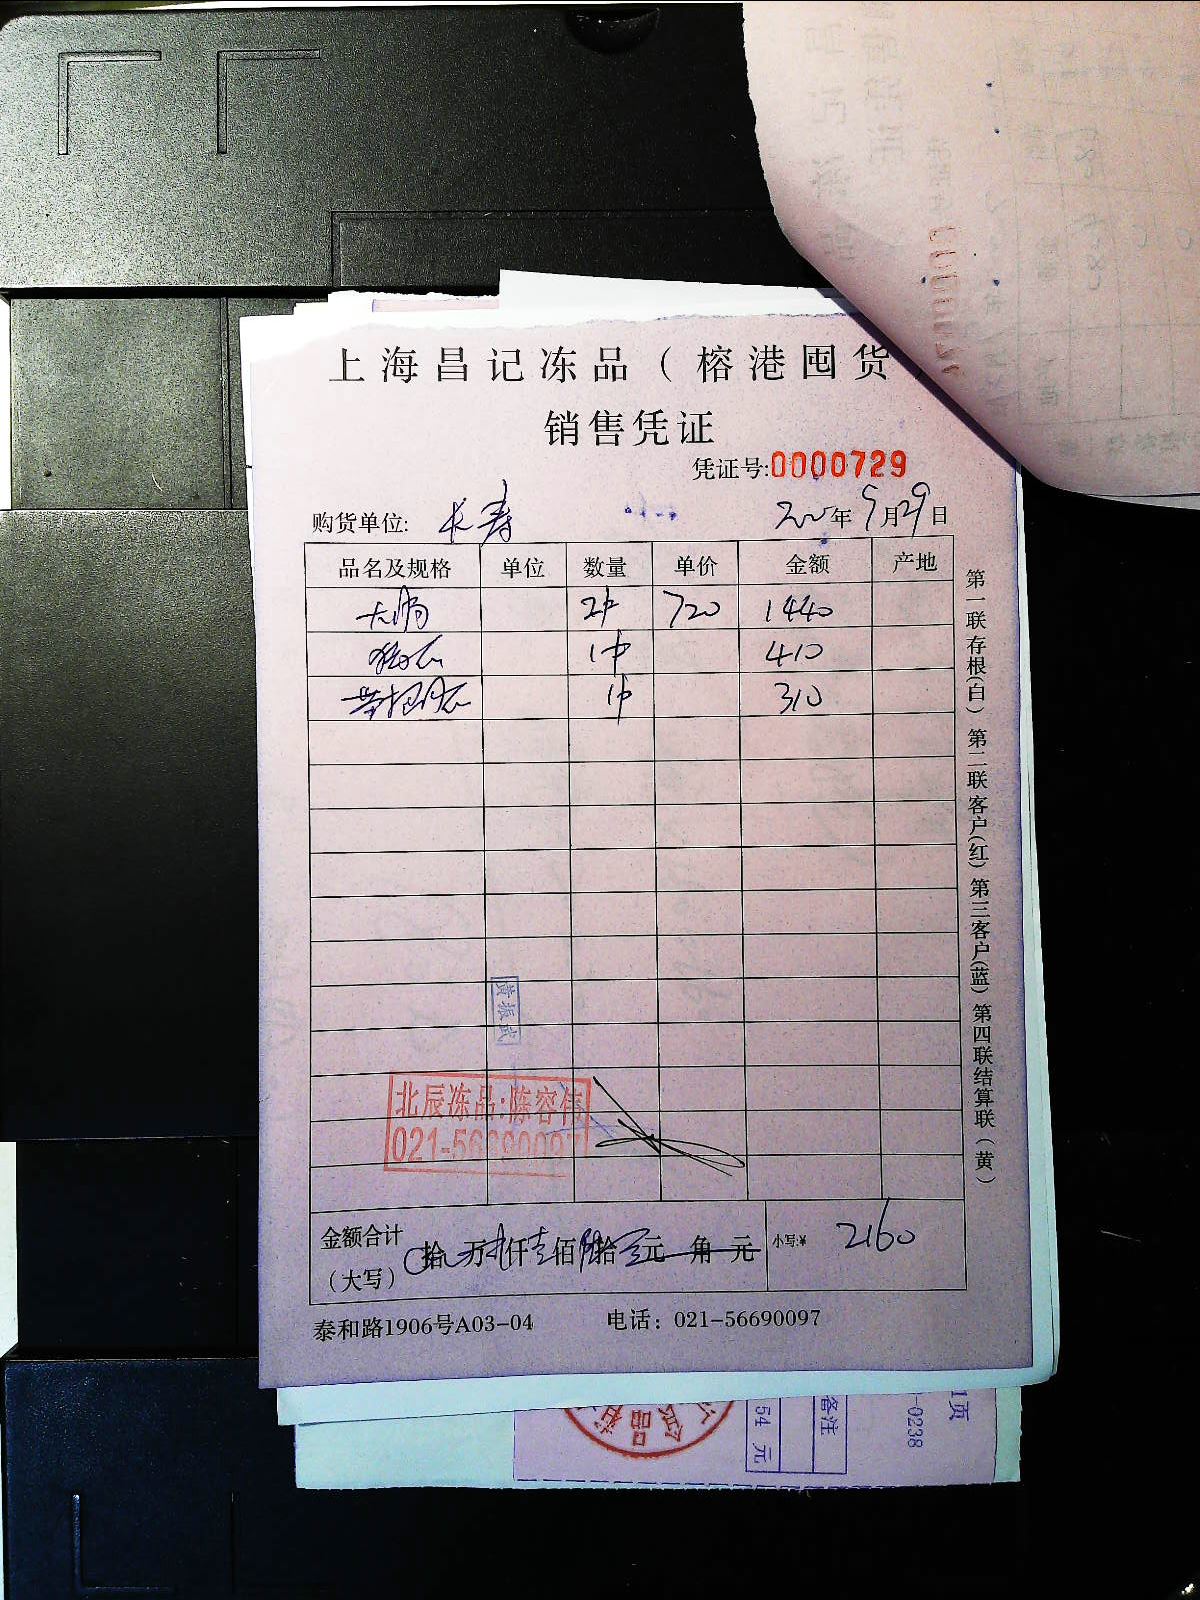 上海昌记冻品（榕港囤货
销售凭证
凭证号:0000729
购货单位: 长寿 年9月29日
品名及规格 单位 数量 单价 金额 产地
大 2件 720 1440
1件 410
1件 310
第一联存根(白) 第二联客户(红) 第三客户(蓝) 第四联结算联(黄)
黄振武
北辰冻品:陈容伟
021-56690097
金额合计
(大写) 拾 万 仟 壹佰 拾 元 角 元 小写:¥ 2160
泰和路1906号A03-04 电话: 021-56690097
1页
-0238
备注
54 元